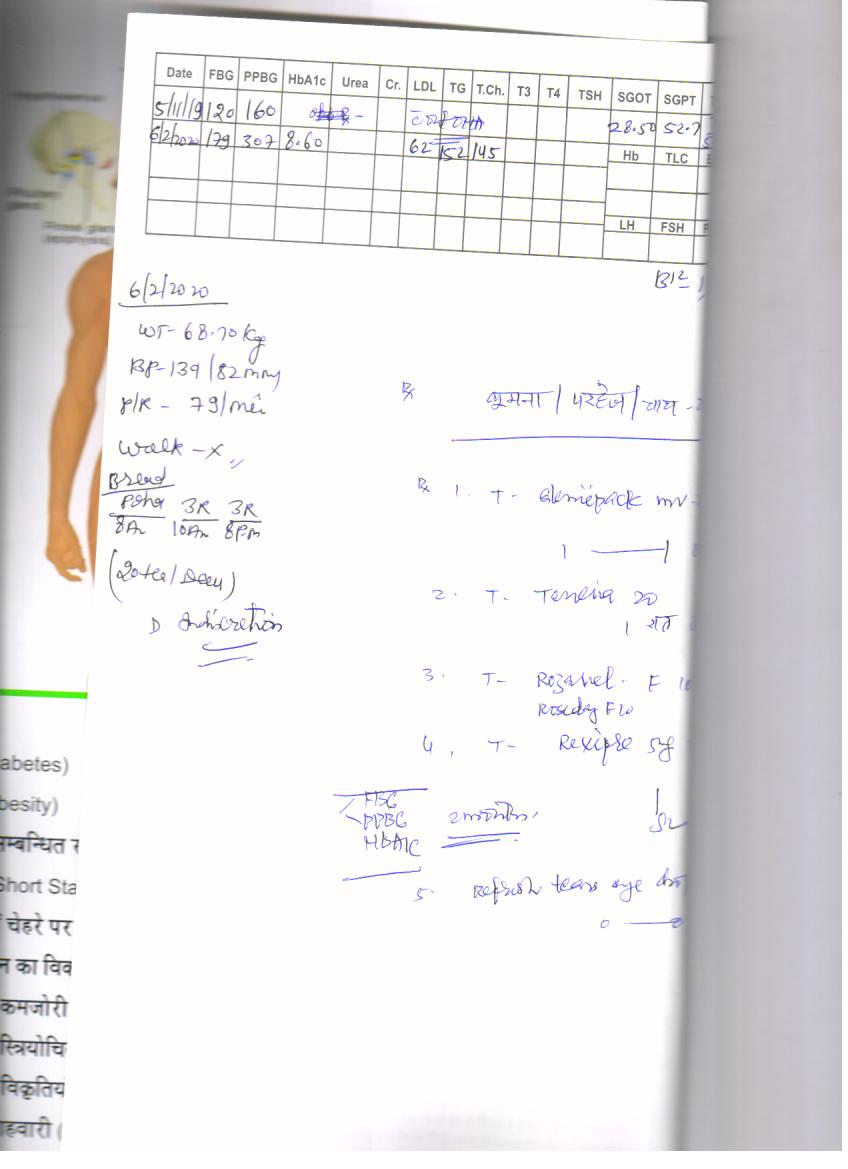 Date FBG PPBG HbA1c Urea Cr. LDL TG T.Ch. T3 T4 TSH SGOT SGPT
5/11/19 120 160 28.50 52.7
6/2/2020 179 307 8.60 62 152 145 Hb TLC
LH FSH
B12
6/2/2020
WT- 68.70 kg
BP-139/82 mm
P/R - 79/min
Walk -x
Bread
Poha 3R 3R
8Am 10Am 8Pm
D Indiscretion
Rx घूमना / परहेज / चाय -
Rx 1. T- Glimepack mv-
1 — 1
2. T- Tenelia 20
1 रात
3. T- Rozavel- F 10
Roseday F10
4, T- Rexipra 5mg
FBG
PPBG 2 months
HbA1c
5. Refresh tears eye
0 — 0
abetes)
besity)
म्बन्धित
Short Sta
चेहरे पर
न का विक
कमजोरी
स्त्रियोचि
विकृतिय
हवारी (